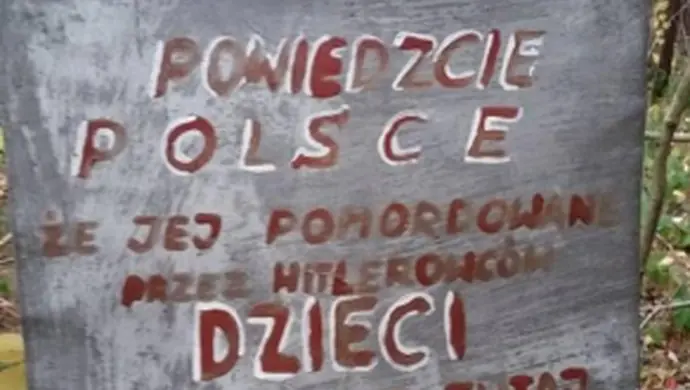 POWIEDZCIE
POLSCE
ŻE JEJ POMORDOWANE
PRZEZ HITLEROWCÓW
DZIECI